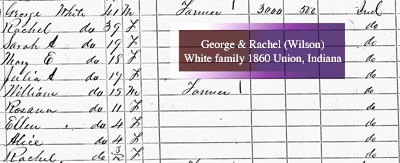 George White 41 M Farmer 1 3000 500 Ind
Rachel do 39 F do
Sarah A do 19 F do
Mary E do 18 F do
Julia A do 17 F do
William do 15 M Farmer 1 do
Rosana do 11 F do
Ellen do 4 F do
Alice do 4 F do
Rachel do 3/12 F do
George & Rachel (Wilson)
White family 1860 Union, Indiana